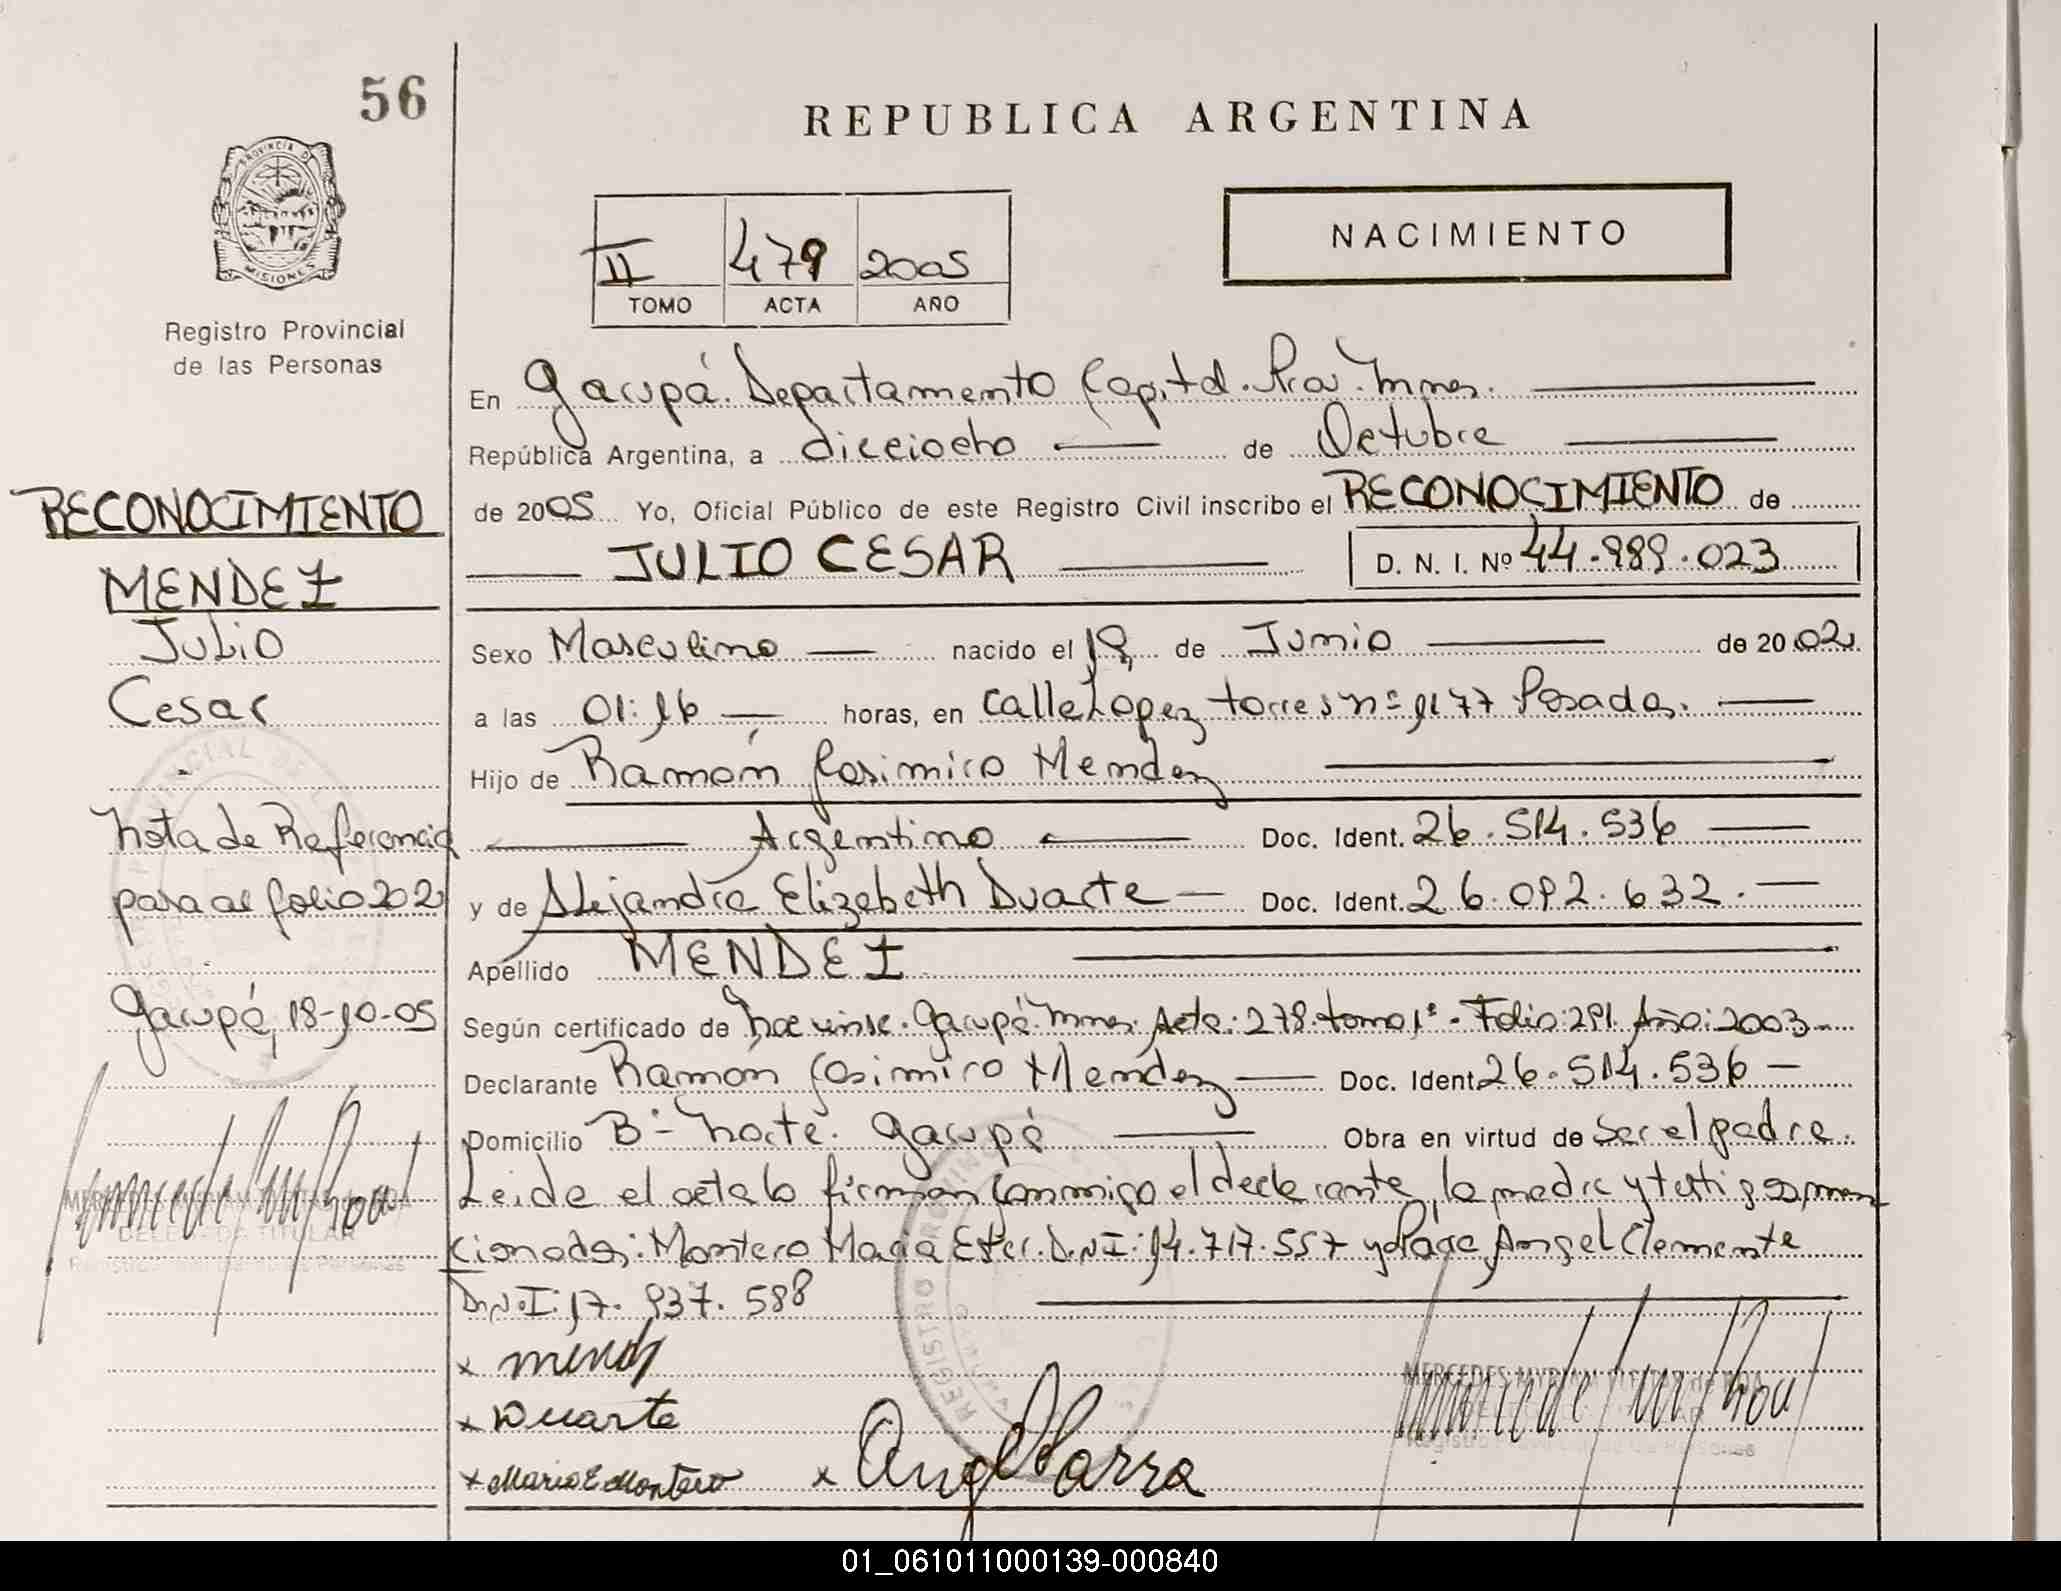 56
REPUBLICA ARGENTINA
PROVINCIA DE
MISIONES
Registro Provincial
de las Personas
NACIMIENTO
II 479 2005
TOMO ACTA AÑO
En Garupá. Departamento Capital. Pcia. Mnes.
República Argentina, a dieciocho de Octubre
de 2005 Yo, Oficial Público de este Registro Civil inscribo el RECONOCIMIENTO de
JULIO CESAR D. N. I. Nº 44.989.023
Sexo Masculino nacido el 19 de Junio de 2002
a las 01:16 horas, en Calle Lopez torres nº Posadas.
Hijo de Ramón Casimiro Mendez
Argentino Doc. Ident. 26.514.536
y de Alejandra Elizabeth Duarte Doc. Ident. 26.092.632.
Apellido MENDEZ
Según certificado de Garupá Mnes. Acta: 278. tomo 1º - Folio: 291. Año: 2003
Declarante Ramón Casimiro Mendez Doc. Ident. 26.514.536
Domicilio Bº Norte. Garupá Obra en virtud de ser el padre.
Leida el acta la firman conmigo el declarante, la madre y testigos men
cionados: Montero Maria Ester. D.N.I: 14.717.557 y Angel Clemente
D.N.I: 17.937.588
x Mendez
x Duarte
x Maria E Montero x Angel Parra
RECONOCIMIENTO
MENDEZ
Julio
Cesar
Nota de Referencia
para al folio 202
Garupá, 18-10-05
DELEGADA TITULAR
Registro Provincial de las Personas
01_061011000139-000840